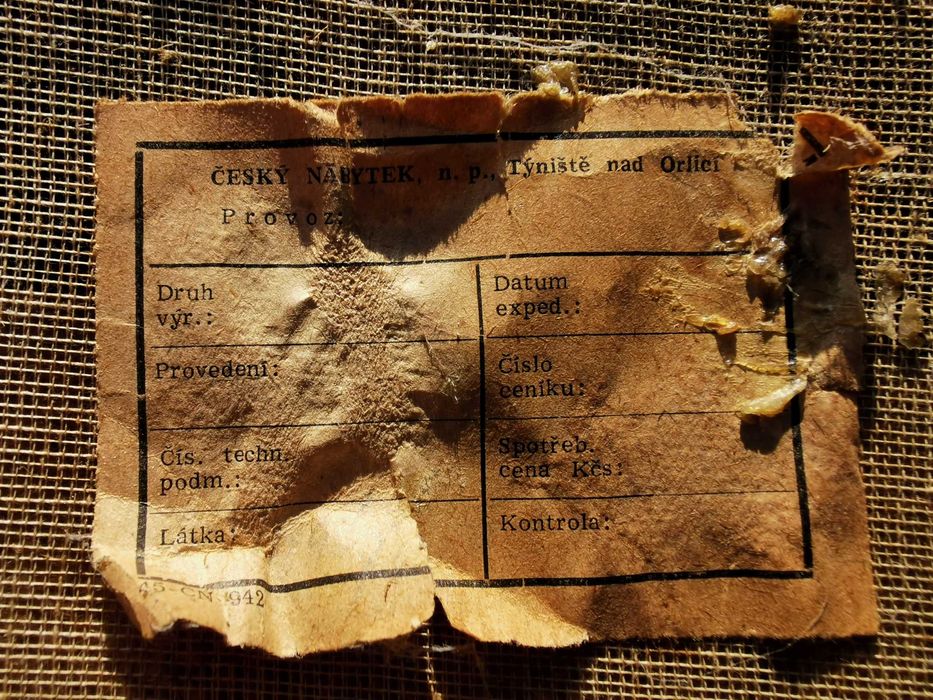 ČESKÝ NÁBYTEK, n. p., Týniště nad Orlicí
Provoz:
Druh
výr.:
Datum
exped.:
Provedení:
Číslo
ceníku:
Čís. techn.
podm.:
Spotřeb.
cena Kčs:
Látka:
Kontrola:
CN 942